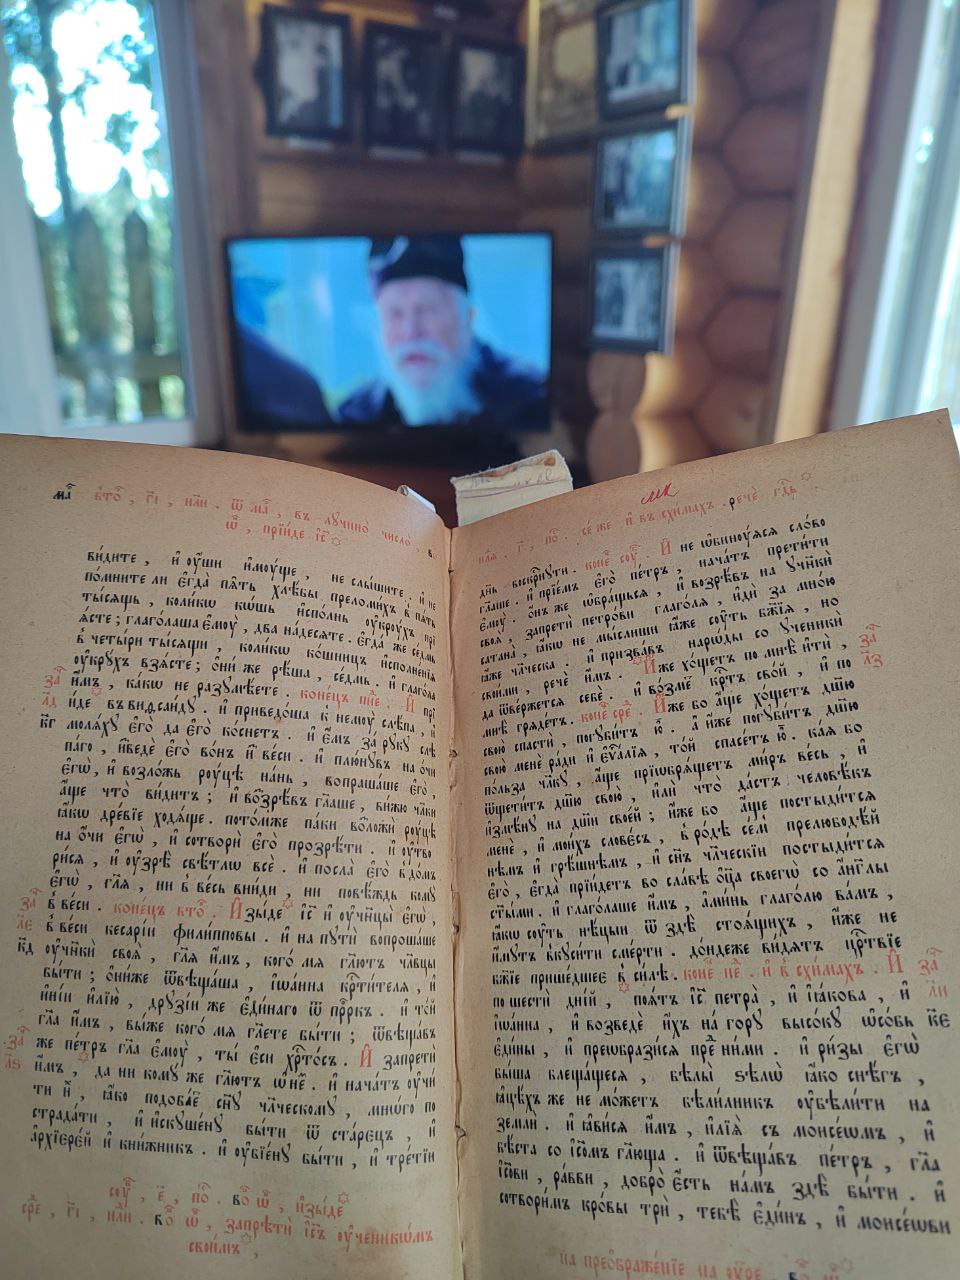 ви́дите , и҆ оу҆ши и҆мꙋ́ще , не слы́шите . и҆ не
по́мните ли є҆гда̀ пѧ́ть хлѣ́бы преломи́хъ в пѧ́ть
ты́сѧщь , коли́кѡ кѡ́шь и҆спо́лнь оу҆крꙋ́хъ прї
ѧ́сте ; глаго́лаша є҆мꙋ̀ , два на́десѧте . є҆гда́ же се́дмь
в четы́ри ты́сѧщи , коли́кѡ ко́шницъ и҆сполне́нїѧ
оу҆крꙋ́хъ взѧ́сте ; ѻ҆ни́ же рѣ́ша , се́дмь . и҆ глаго́ла
и҆̀мъ , ка́кѡ не разꙋмѣ́ете . коне́цъ И҆ прї
и́де въ виѳсаи́дꙋ . и҆ приведо́ша к немꙋ̀ слѣ́па , и҆
молѧ́хꙋ є҆го̀ да є҆го̀ ко́снетъ . и҆ є҆́мъ за рꙋ́кꙋ слѣ
па́го , и҆зведѐ є҆го̀ во́нъ и҆з ве́си . и҆ плю́нꙋвъ на ѻ҆́чи
є҆гѡ̀ , и҆ возло́жь рꙋ́цѣ на́нь , вопраша́ше є҆го̀ ,
а҆́ще что̀ ви́дитъ ; и҆ воззрѣ́въ гл҃аше , ви́жю чл҃ки
ꙗ҆́кѡ дре́вїе ходѧ́ще . пото́мже па́ки возложѝ рꙋ́цѣ
на ѻ҆́чи є҆гѡ̀ , и҆ сотворѝ є҆го̀ прозрѣ́ти . и҆ оу҆тво
ри́сѧ , и҆ оу҆зрѣ̀ свѣ́тлѡ всѐ . и҆ посла̀ є҆го̀ в до́мъ
є҆гѡ̀ , гл҃ѧ , ни в ве́сь вни́ди , ни повѣ́ждь комꙋ̀
в ве́си . коне́цъ вто҇ . И҆зы́де і҆с҃ и҆ оу҆ченицы̀ є҆гѡ̀ ,
в ве́си кесарі́и фили́пповы . и҆ на пꙋтѝ вопроша́ше
оу҆чн҃кѝ своѧ̀ , гл҃ѧ и҆̀мъ , кого́ мѧ гл҃ютъ чл҃вцы
бы́ти ; ѻ҆ни́же ѿвѣща́ша , і҆ѡа́нна кр҃ти́телѧ , и҆
и҆ні́и и҆лїю̀ , дрꙋзі́и же є҆ди́наго ѿ пр҃рокъ . и҆ то́й
гл҃а и҆̀мъ , вы́же кого́ мѧ гл҃ете бы́ти ; ѿвѣща́въ
же пе́тръ гл҃а є҆мꙋ̀ , ты̀ є҆сѝ хр҃то́съ . И҆ запретѝ
и҆̀мъ , да ни комꙋ́ же гл҃ютъ ѡ҆ не́мъ . и҆ нача́тъ оу҆чи́
ти ѧ҆̀ , ꙗ҆́кѡ подоба́етъ сн҃ꙋ чл҃ческомꙋ , мно́гѡ по
страда́ти , и҆ и҆скꙋше́нꙋ бы́ти ѿ ста́рецъ , и҆
а҆рхїере́й и҆ кни́жникъ . и҆ оу҆бїе́нꙋ бы́ти , и҆ тре́тїи
запретѝ і҆с҃ъ оу҆ченикѡ́мъ
свои̑мъ ,
се́ же и҆ въ схи́махъ . речѐ гд҇ь
дн҃ь воскр҇нꙋти . И҆ не ѡ҆бинꙋ́ѧсѧ сло́во
гл҃аше . и҆ прїе́мъ є҆го̀ пе́тръ , нача́тъ прети́ти
є҆мꙋ̀ . ѻ҆́нъ же ѡ҆бра́щьсѧ , и҆ воз̾рѣ́въ на оу҆чн҃кѝ
своѧ̀ , запретѝ петро́ви глаго́лѧ , и҆дѝ за мно́ю
сатана̀ , ꙗ҆́кѡ не мы́слиши ꙗ҆́же сꙋ́ть бж҃їѧ , но
ꙗ҆́же чл҃ческа . и҆ призва́въ наро́ды со оу҆ченикѝ
свои́ми , речѐ и҆̀мъ . И҆́же хо́щетъ по мнѣ̀ и҆тѝ ,
да ѿве́ржетсѧ себѐ . и҆ во́зметъ кр҇тъ сво́й , и҆ по
мнѣ̀ грѧде́тъ . коне́цъ И҆́же бо а҆́ще хо́щетъ дш҃ю
свою̀ спастѝ , погꙋби́тъ ю҆̀ . а҆ и҆́же погꙋби́тъ дш҃ю
свою̀ менѐ ра́ди и҆ є҆ѵⷢ҇а́лїѧ , то́й спасе́тъ ю҆̀ . ка́ѧ бо
по́льза чл҃кꙋ , а҆́ще прїѡбрѧ́щетъ ми́ръ ве́сь , и҆
ѿщети́тъ дш҃ю свою̀ , и҆лѝ что̀ да́стъ человѣ́къ
и҆змѣ́нꙋ на дш҃и свое́й ; и҆́же бо а҆́ще постыди́тсѧ
менѐ , и҆ мои́хъ слове́съ , в ро́дѣ се́мъ прелюбодѣ́й
нѣмъ и҆ грѣ́шнѣмъ , и҆ сн҃ъ чл҃ческїи постыди́тсѧ
є҆го̀ , є҆гда̀ прїи́детъ во сла́вѣ ѻ҆ц҃а своегѡ̀ со а҆́нг҃лы
ст҃ы́ми . и҆ глаго́лаше и҆̀мъ , а҆ми́нь глаго́лю ва́мъ ,
ꙗ҆́кѡ сꙋ́ть нѣ́цыи ѿ здѣ̀ стоѧ́щихъ , и҆́же не
и҆́мꙋтъ вкꙋси́ти сме́рти . до́ндеже ви́дѧтъ цр҇твїе
бж҃їе прише́дшее в си́лѣ . и҆ в схи́махъ . И҆
по шестѝ дні́й , поѧ́тъ і҆с҃ петра̀ , и҆ і҆ꙗ́кова , и҆
і҆ѡа́нна , и҆ возведѐ и҆̀хъ на́ горꙋ высо́кꙋ ѡ҆со́бь
є҆ди́ны , и҆ преѡбрази́сѧ пре́д ни́ми . и҆ ри́зы є҆гѡ̀
бы́ша блеща́щесѧ , бѣлы̀ ѕѣлѡ̀ ꙗ҆́кѡ снѣ́гъ ,
ꙗ҆цѣ́хъ же не мо́жетъ бѣли́лникъ оу҆бѣли́ти на
землѝ . и҆ ꙗ҆ви́сѧ и҆̀мъ , и҆лїѧ̀ съ моисе́ѡмъ , и҆
бѣ́ста со і҆с҃омъ гл҃юща . и҆ ѿвѣща́въ пе́тръ , гл҃а
і҆с҃ови , ра́вви , добро̀ є҆́сть на́мъ здѣ̀ бы́ти . и҆
сотвори́мъ кро́вы трѝ , тебѣ̀ є҆ди́нъ , и҆ моисе́ѡви